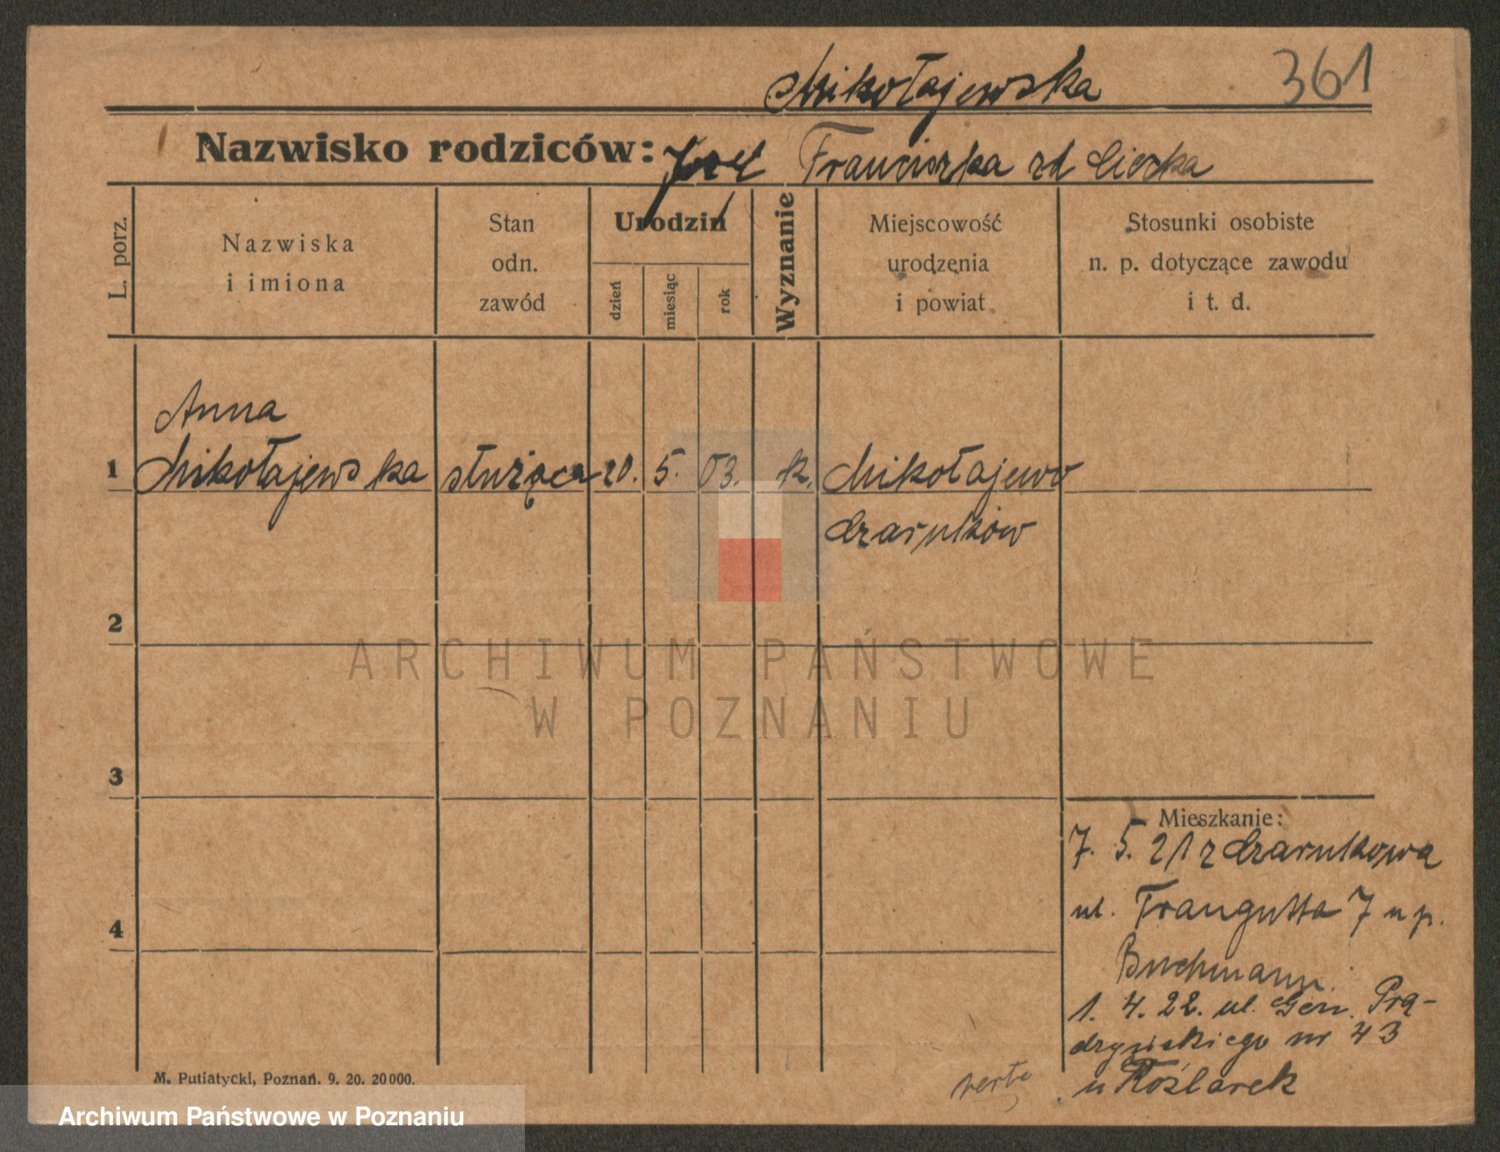 Mikołajewska 361
Nazwisko rodziców: Józef Franciszka zd Cierka
L. porz.
Nazwiska
i imiona
Stan
odn.
zawód
Urodzin
dzień
miesiąc
rok
Wyznanie
Miejscowość
urodzenia
i powiat
Stosunki osobiste
n. p. dotyczące zawodu
i t. d.
Anna
1 Mikołajewska służąca 20. 5. 03. k. Mikołajewo
Czarnków
2
ARCHIWUM PAŃSTWOWE
W POZNANIU
3
4
Mieszkanie:
7. 5. 21 z Czarnkowa
ul. Traugutta 7 u p.
Buchmann.
1. 4. 22. ul. Gen. Prą-
dzyńskiego nr 43
u Koźlarek
verte
M. Putiatycki, Poznań. 9. 20. 20000.
Archiwum Państwowe w Poznaniu